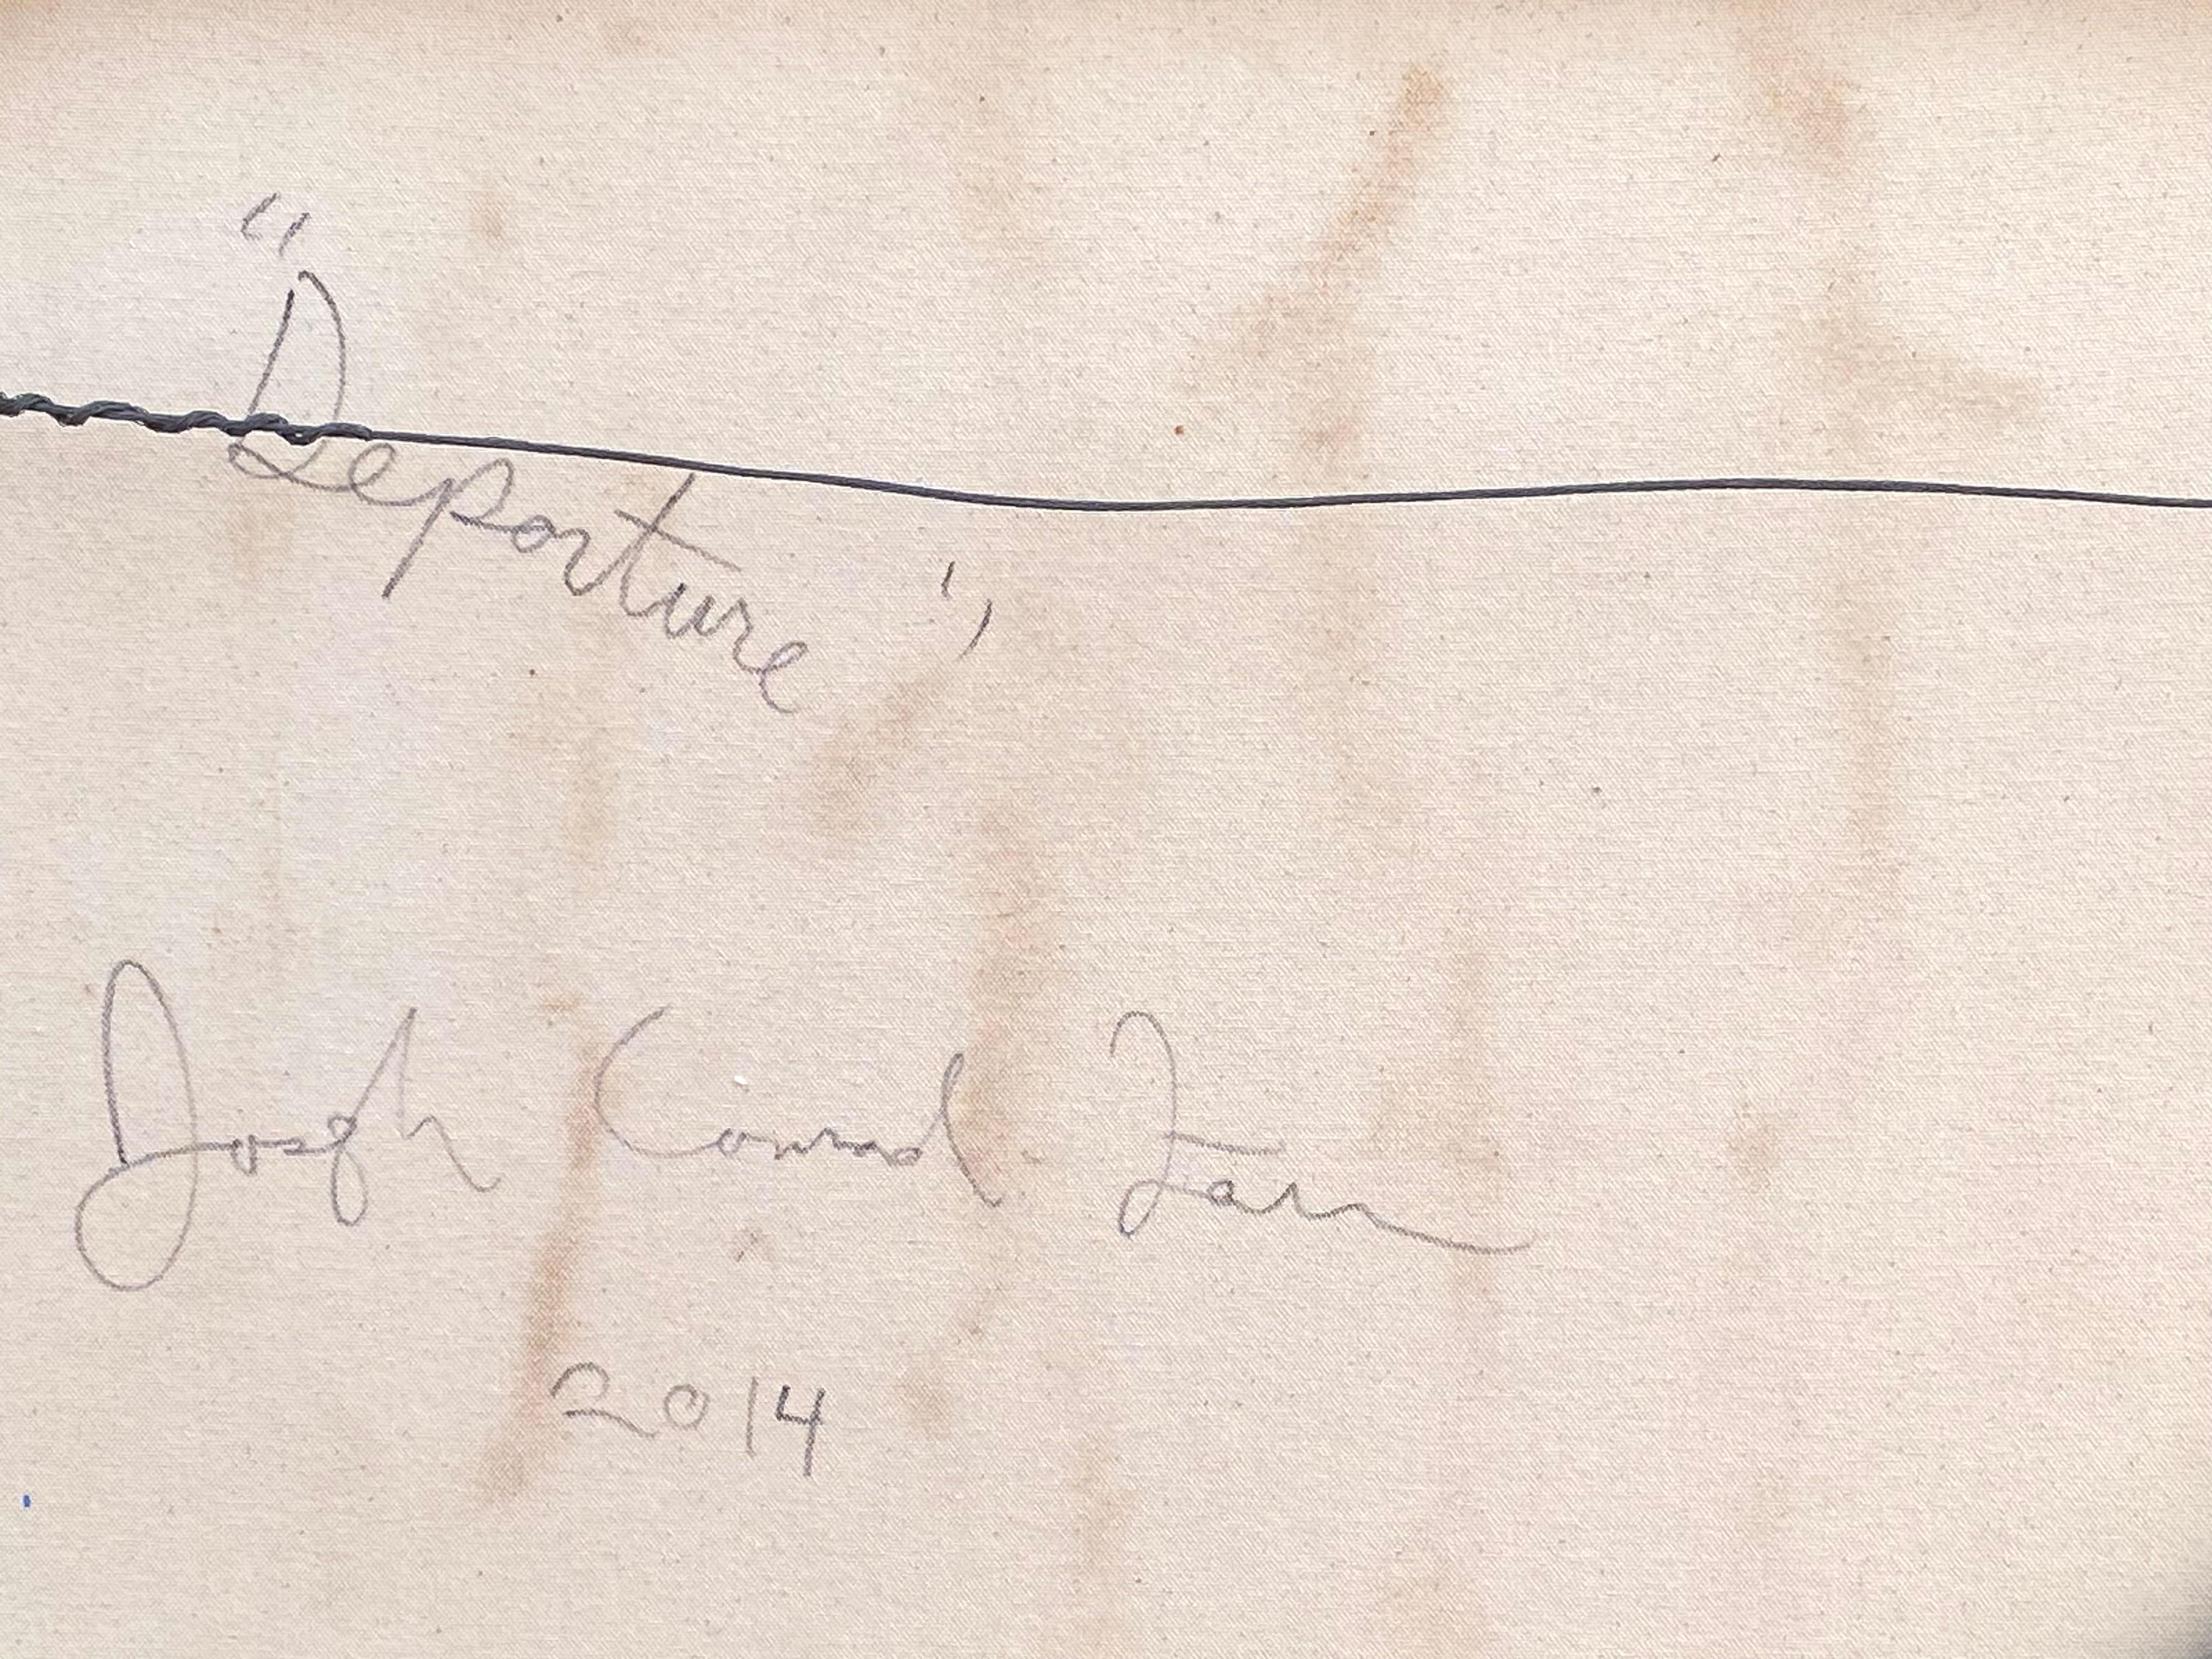 "Departure"
Joseph Conrad
2014